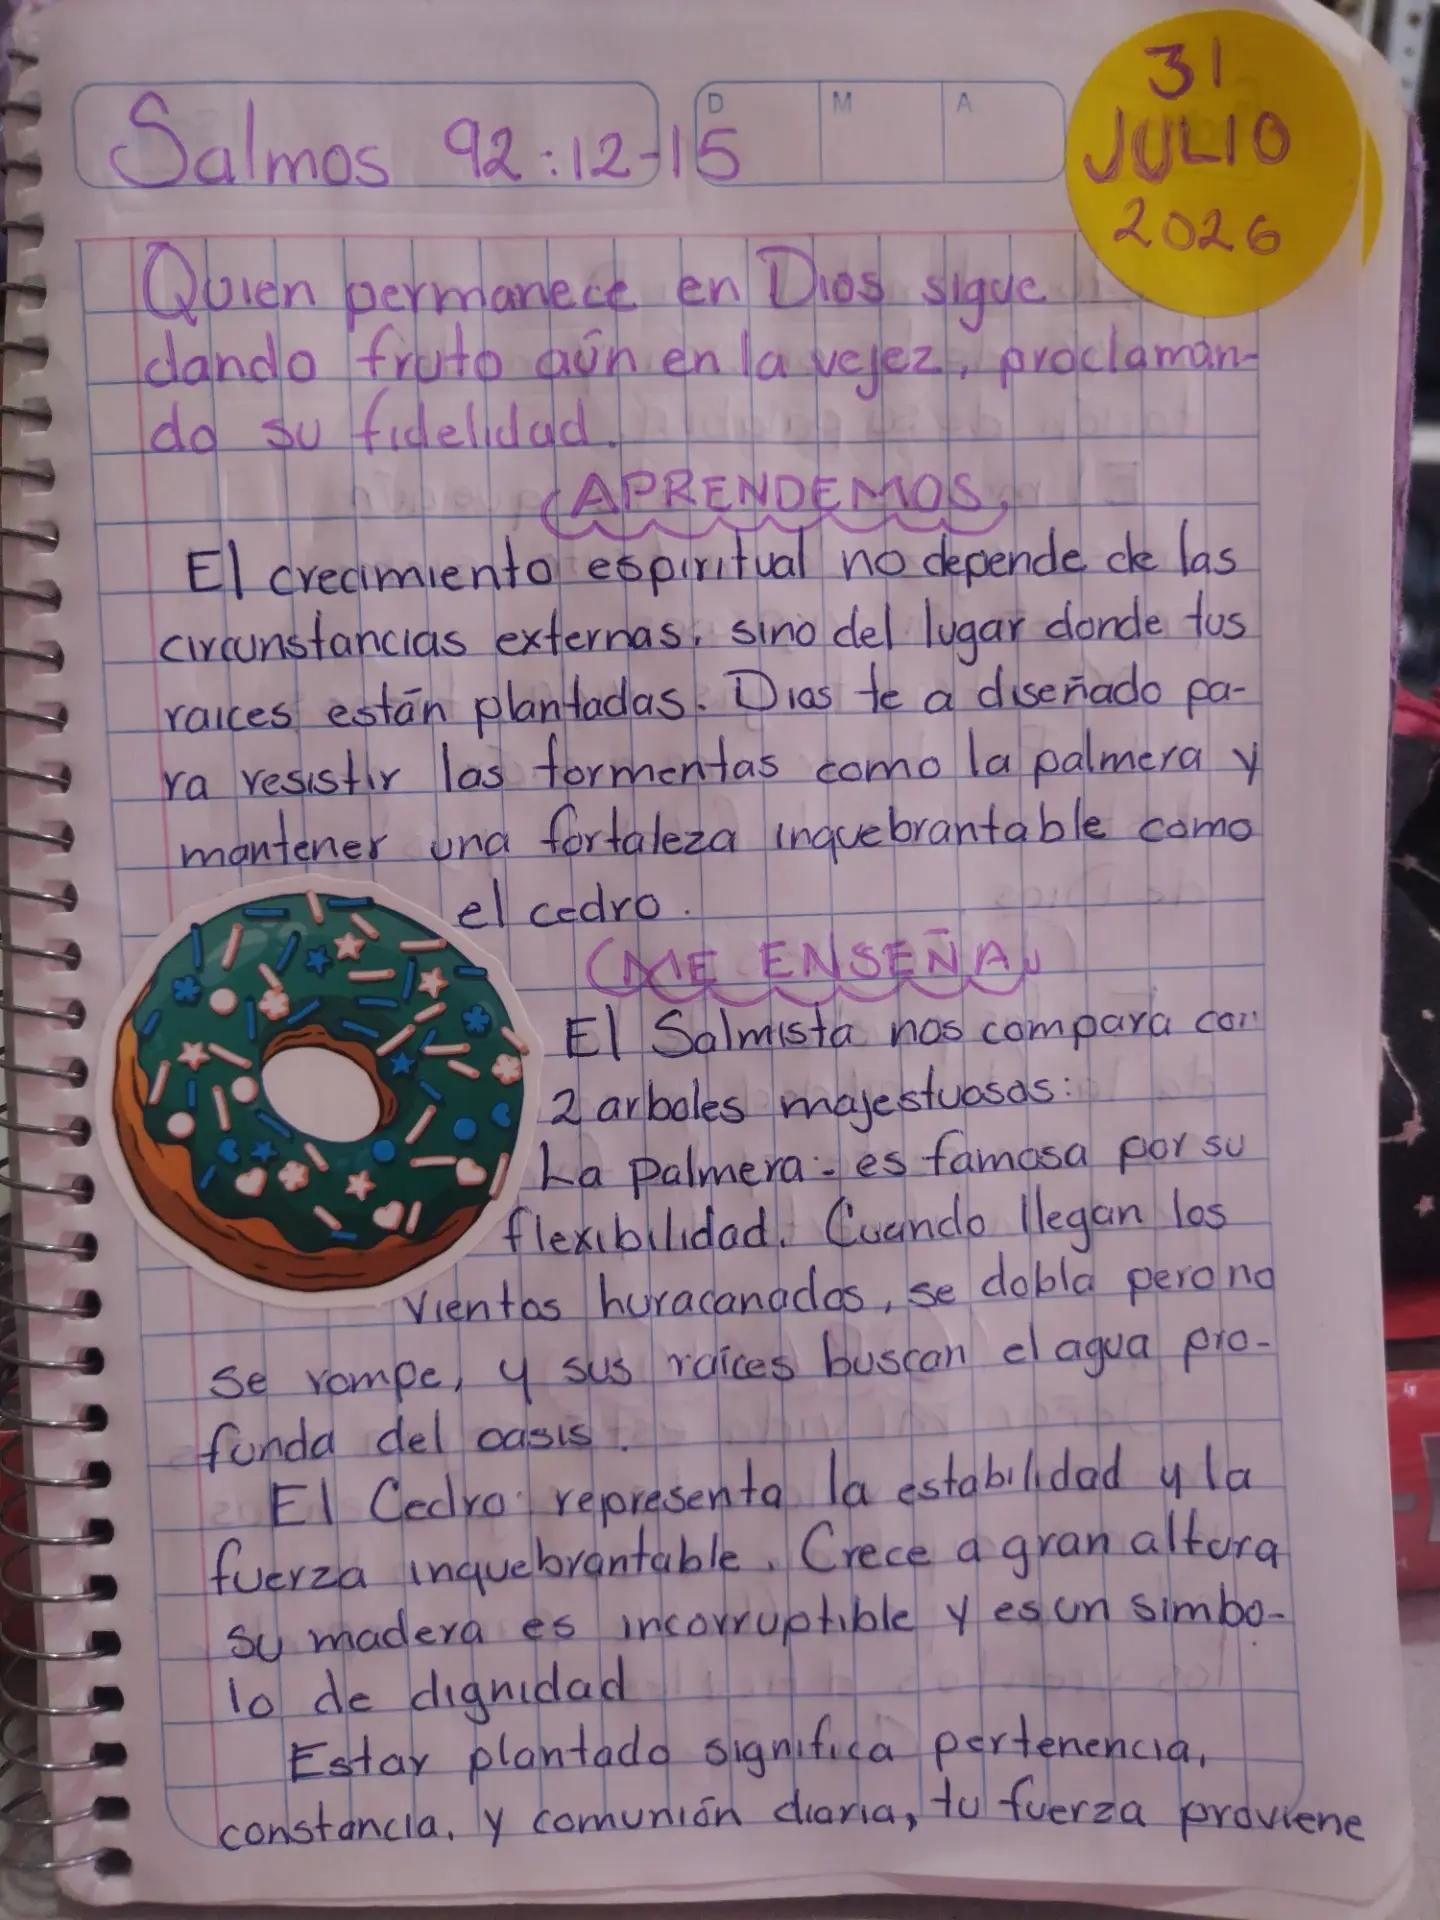 Salmos 92:12-15
D M A
31
JULIO
2026
Quien permanece en Dios sigue
dando fruto aún en la vejez, proclaman-
do su fidelidad.
APRENDEMOS
El crecimiento espiritual no depende de las
circunstancias externas, sino del lugar donde tus
raices están plantadas. Dios te a diseñado pa-
ra resistir las tormentas como la palmera y
mantener una fortaleza inquebrantable como
el cedro.
ME ENSEÑA
El Salmista nos compara con
2 arboles majestuosos:
La Palmera:- es famosa por su
flexibilidad. Cuando llegan los
vientos huracanados, se dobla pero no
se rompe, y sus raíces buscan el agua pro-
funda del oasis.
El Cedro: representa la estabilidad y la
fuerza inquebrantable. Crece a gran altura
su madera es incorruptible y es un simbo-
lo de dignidad
Estar plantado significa pertenencia,
constancia, y comunión diaria, tu fuerza proviene